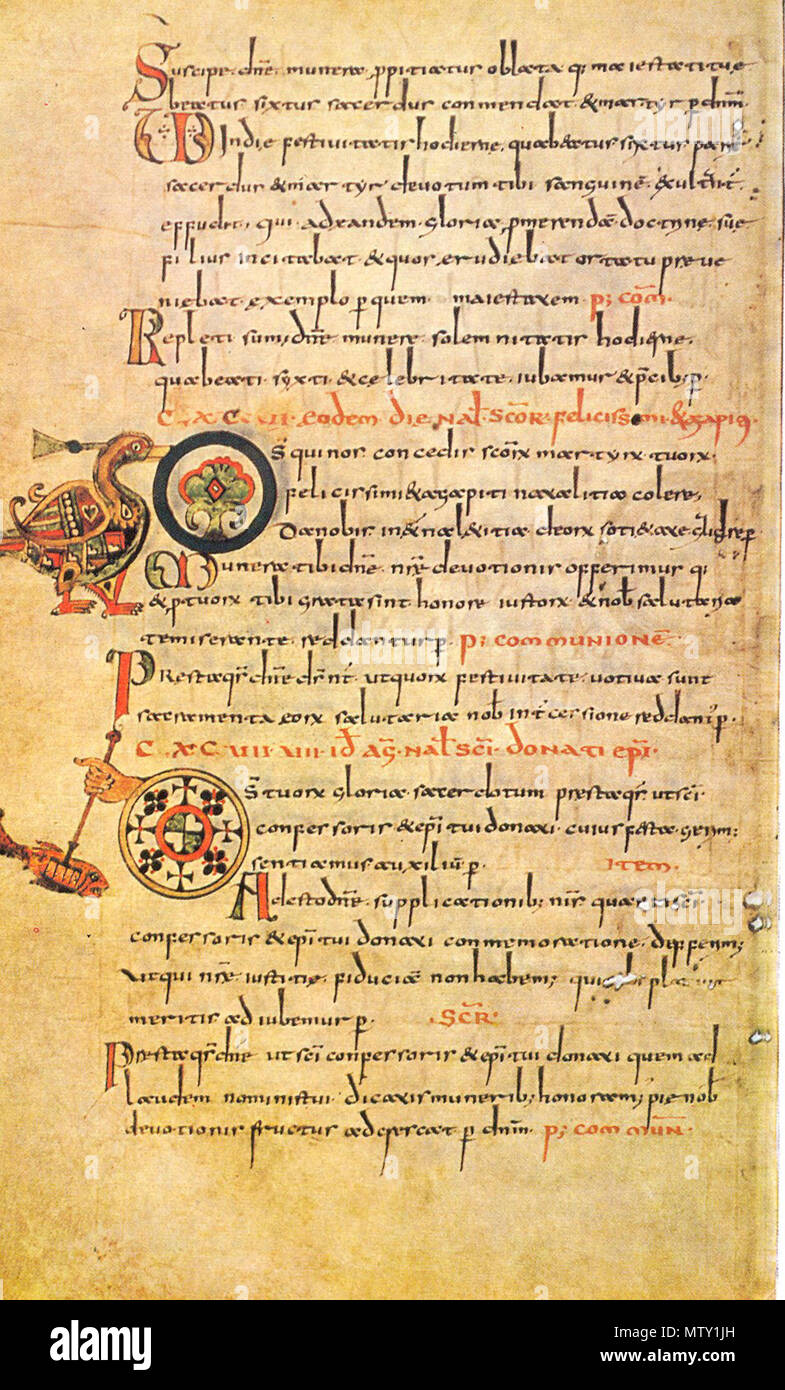 Suscipe · dñe · munera · ppitiatur oblata q; maiestatitue
beatur sixtur sacerdur conmendat · & martyr p dnm̄ ·
VD Indie festivitatir hodierne, quabeatur sixtur
sacerdur & martyr · devotum tibi sanguinē · exultanr
effudit · qui adeandem gloriā, pmerendā doctrine suę
filiur incitabat · & quor, erudiebat ortatu preue
niebat, exemplo p quem · maiestatem · p; com̄ ·
Repleti sum; dñe munere · solemnitatir hodierne ·
quabeati · syxti · & celebritate · iubamur & p̄cib; p ·
C · X · C · VII · eodem die nat̄ · Scōr · felicissimi & agapiti ·
Dr̄ qui nor concedir scōr̄ martyr̄ tuor̄ ·
felicissimi & agapiti natalitia colere,
da nobir · in &na l&itia deor̄ soti&ate
Munera tibi dñe · nr̄e devotionir offerimur q;
& p tuor̄ tibi grata sint honore iustor̄ · & nob̄ salutaria
te miserante · reddantur p · p; communionē ·
Prestaq̄r dñe dr̄ nr̄ · ut quor̄ festivitate · votiva sunt
sacramenta eor̄ salutaria nob̄ int̄cessione reddanr̄ p ·
C · X · C · VIII · VIII · id̄ Aḡ · Nat̄ · Sc̄i · donati ep̄i ·
Dr̄ tuor̄ gloria sacerdotum prestaq̄r ut sc̄i ·
confessorir & ep̄i tui donati · cuiur festa gerim;
sentiamur auxiliū p · Item ·
Adesto dñe · supplicationib; nr̄ir quar in sc̄i ·
confessorir & ep̄i tui donati conmemoratione · deferim;
ut qui nr̄e iustitie, fiduciā non habem;
meritir adiubemur p · Sc̄R ·
Prestaq̄r dñe ut sc̄i confessorir & ep̄i tui donati quem ad
laudem noministui · dicatir munerib; honoram; pie nob̄
devotionir fructur adcrercat p dnm̄ · p; commūn ·
alamy
Image ID: MTY1JH
www.alamy.com